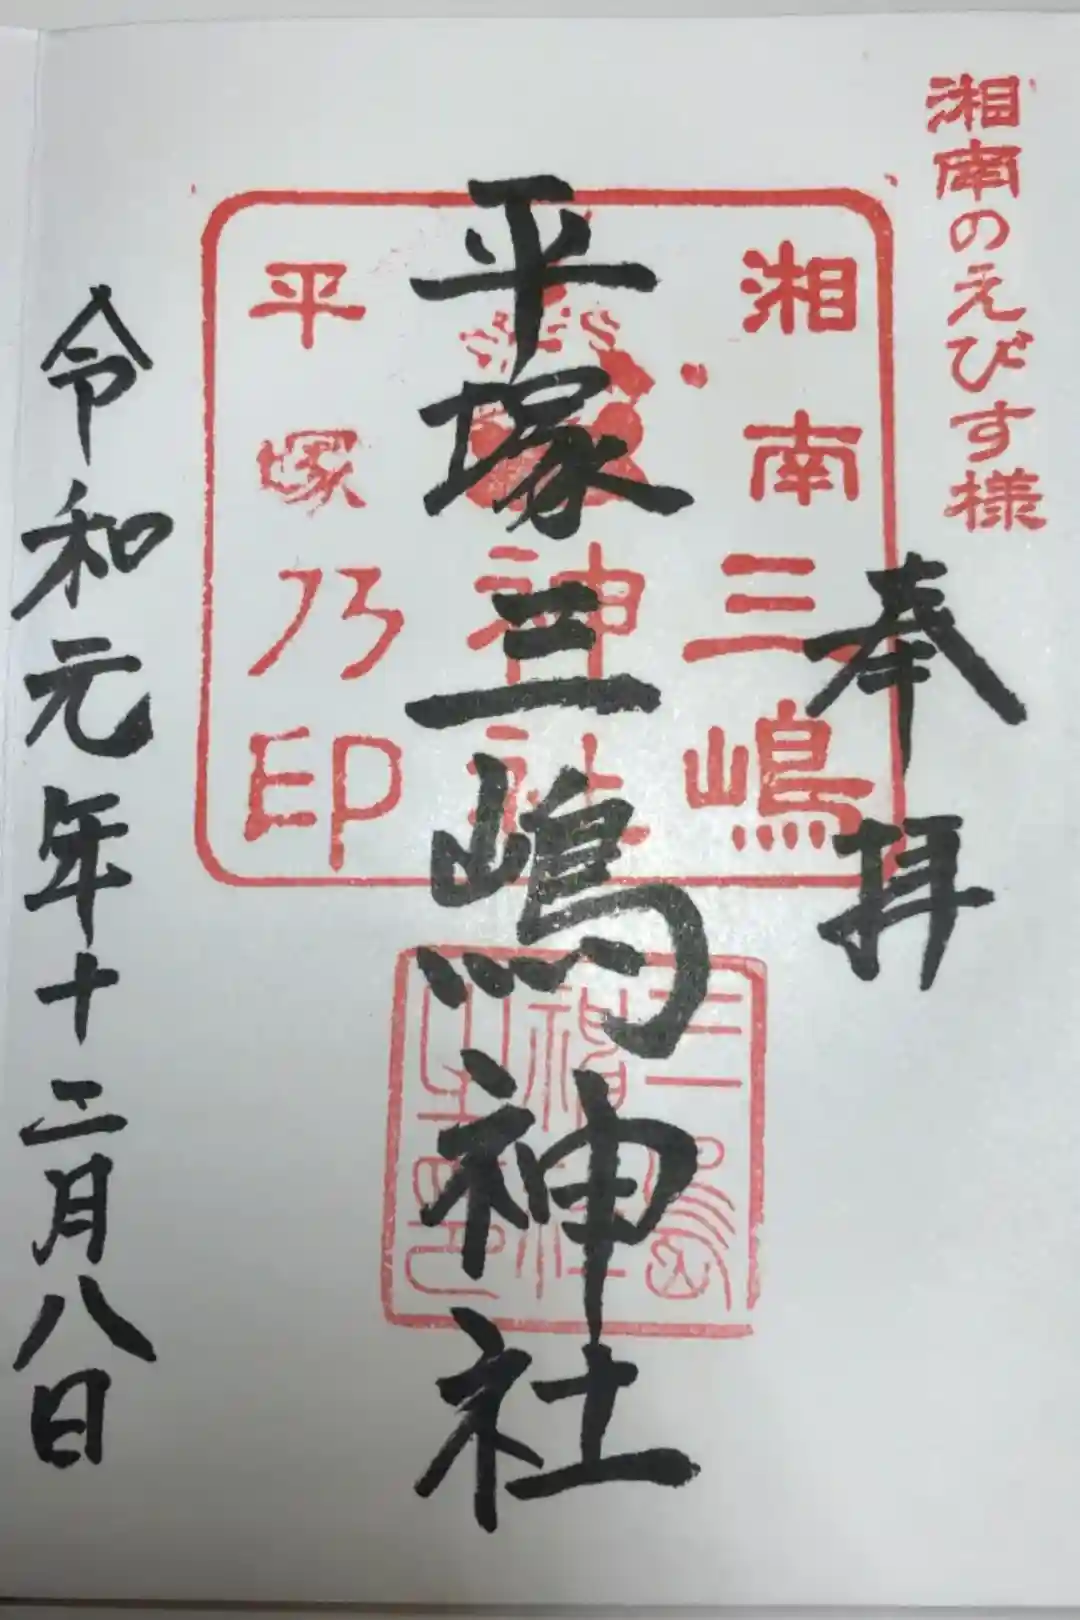 湘南のえびす様
奉拝
湘南三嶋
神社
平塚乃印
平塚三嶋神社
三嶋
神社
令和元年十二月八日